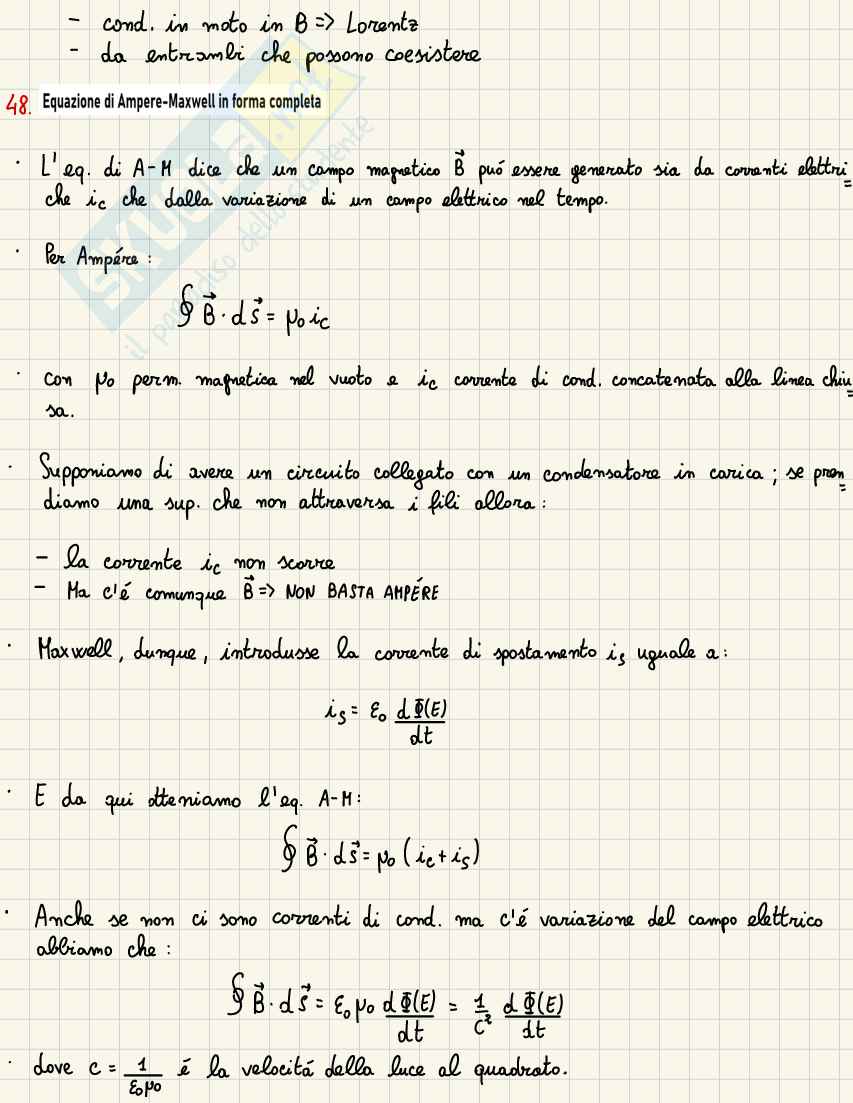 - cond. in moto in B => Lorentz
- da entrambi che possono coesistere
48. Equazione di Ampere-Maxwell in forma completa
· L'eq. di A-M dice che un campo magnetico B⃗ puó essere generato sia da correnti elettri=
che i_c che dalla variazione di un campo elettrico nel tempo.
· Per Ampére :
∮ B⃗ · d s⃗ = μ₀ i_c
· con μ₀ perm. magnetica nel vuoto e i_c corrente di cond. concatenata alla linea chiu=
sa.
· Supponiamo di avere un circuito collegato con un condensatore in carica ; se pren=
diamo una sup. che non attraversa i fili allora :
- la corrente i_c non scorre
- Ma c'é comunque B⃗ => NON BASTA AMPÉRE
· Maxwell, dunque, introdusse la corrente di spostamento i_s uguale a :
i_s = ε₀ dΦ(E)/dt
· E da qui otteniamo l'eq. A-M :
∮ B⃗ · d s⃗ = μ₀ (i_c + i_s)
· Anche se non ci sono correnti di cond. ma c'é variazione del campo elettrico
abbiamo che :
∮ B⃗ · d s⃗ = ε₀ μ₀ dΦ(E)/dt = 1/c² dΦ(E)/dt
· dove c = 1/ε₀μ₀ é la velocitá della luce al quadrato.
SKUOLA.net
il paradiso dello studente